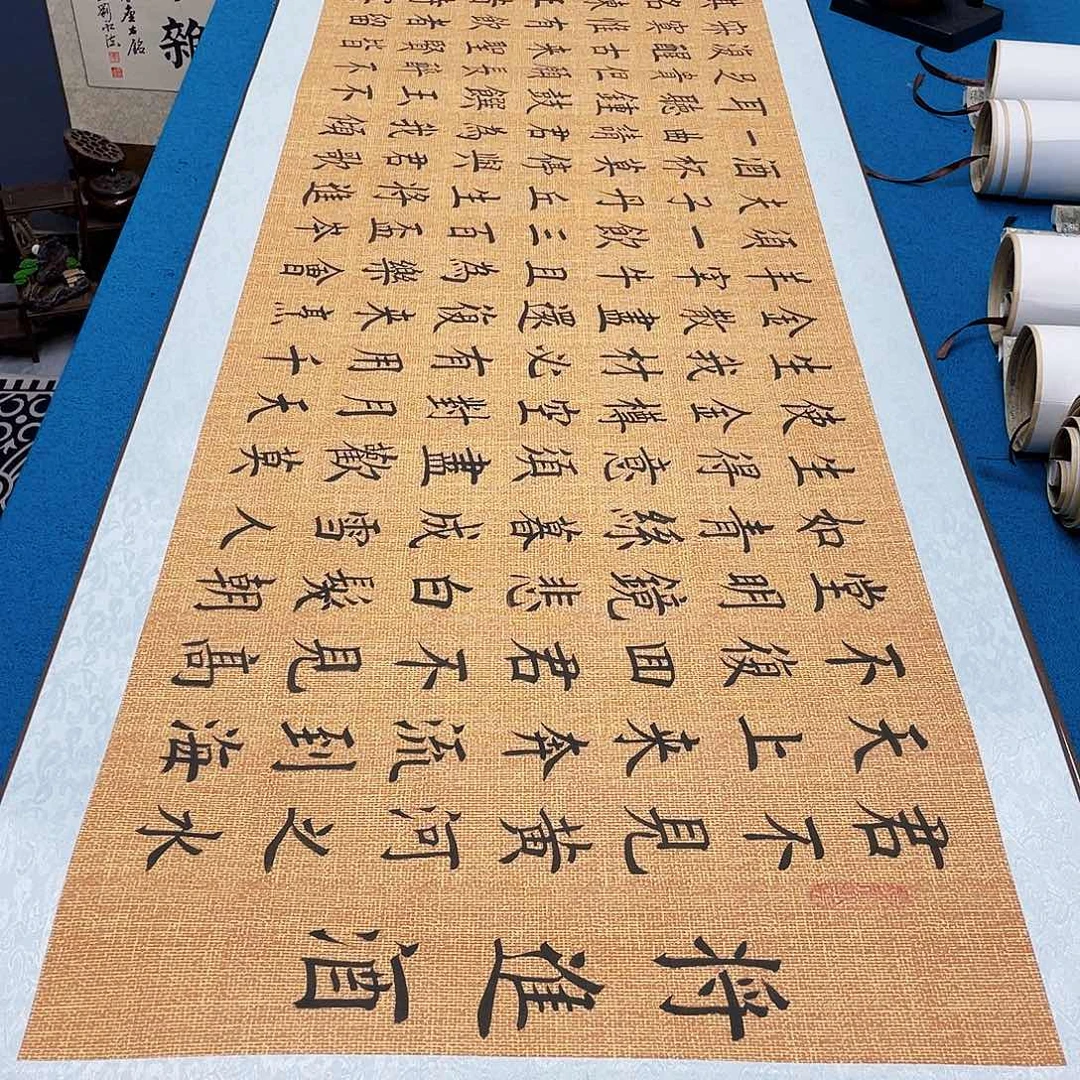 將進酒
君不見黃河之水
天上来奔流到海
不復回君不見高
堂明鏡悲白髮朝
如青絲暮成雪人
生得意須盡歡莫
使金樽空對月天
生我材必有用千
金散盡還復来烹
羊宰牛且為樂會
須一飲三百盃岑
夫子丹丘生將進
酒杯莫停與君歌
一曲請君為我傾
耳聽鐘鼓饌玉不
足貴但願長醉不
復醒古来聖賢皆
寂寞惟有飲者留
雜